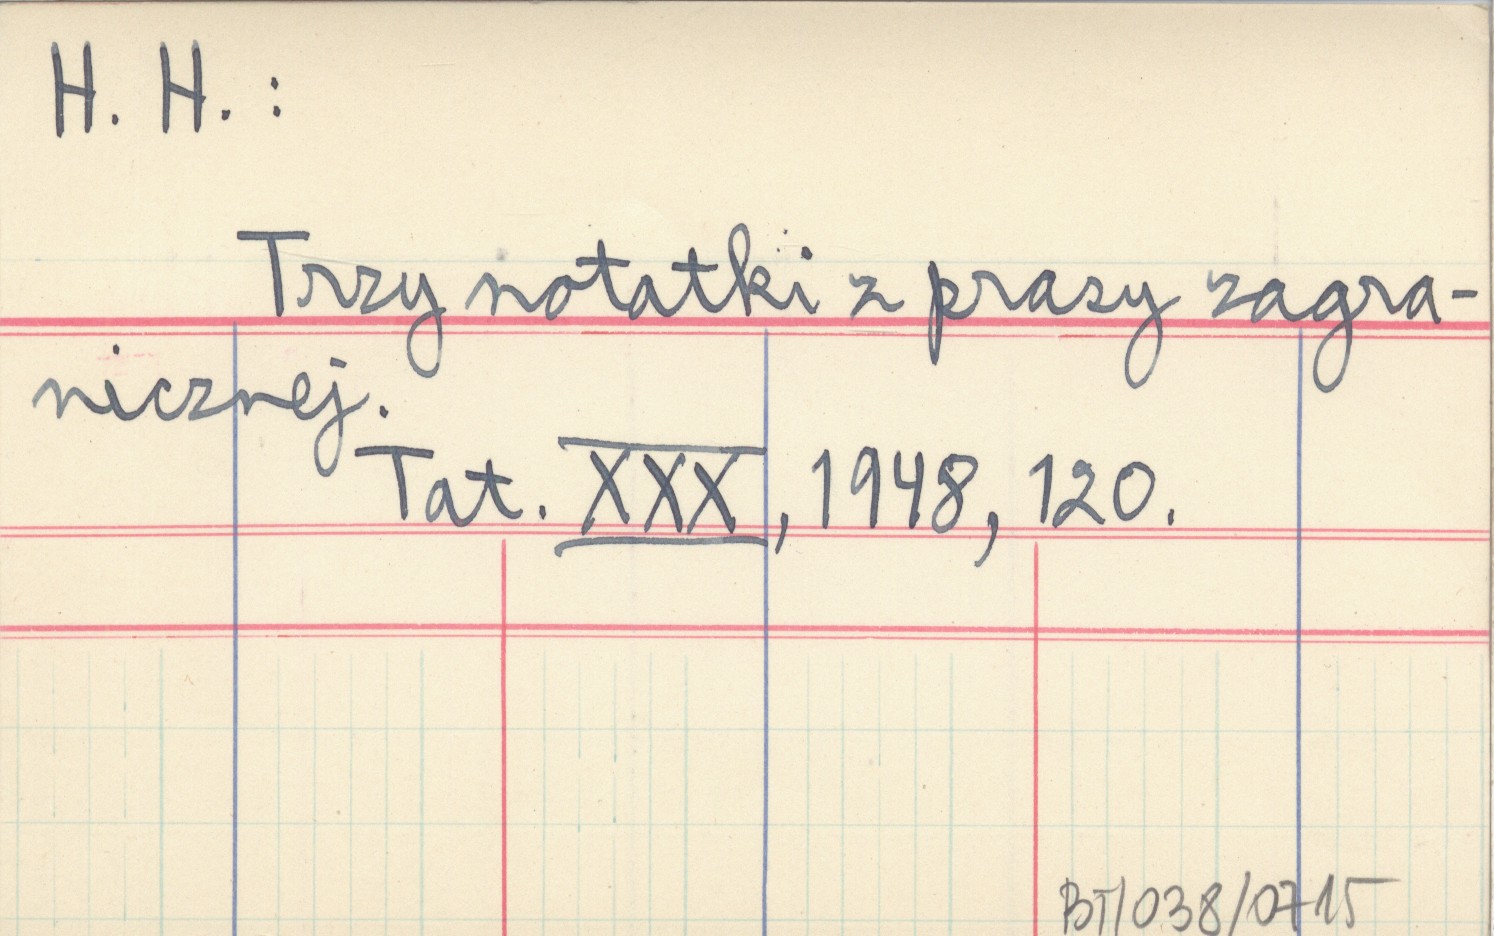 H. H.:
Trzy notatki z prasy zagra-
nicznej.
Tat. XXX, 1948, 120.
BT/038/0715